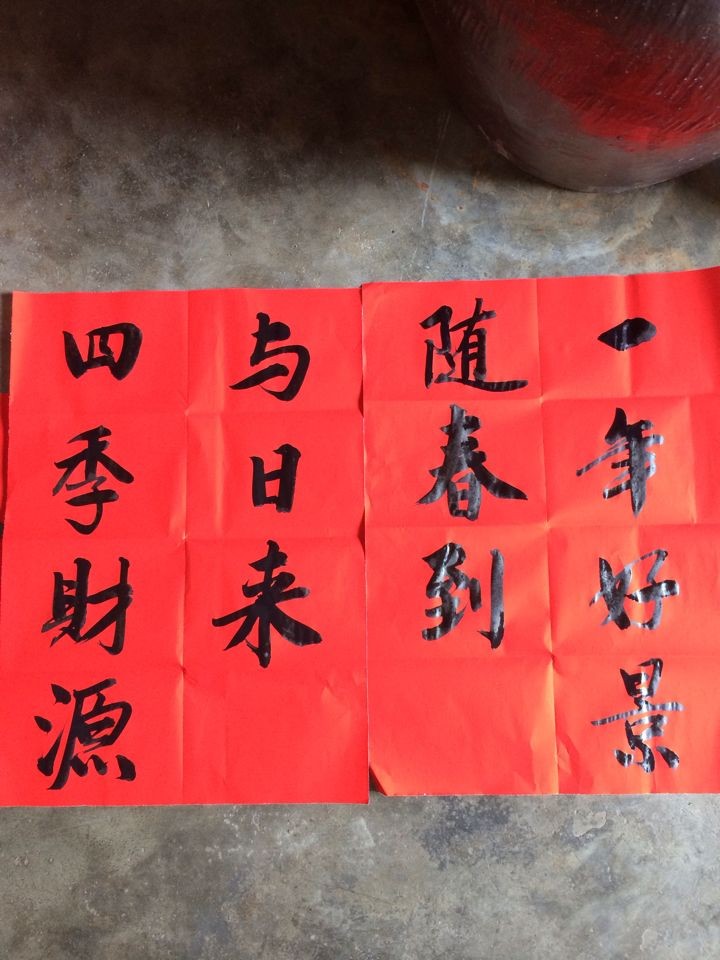 一年好景
随春到
四季財源
与日来